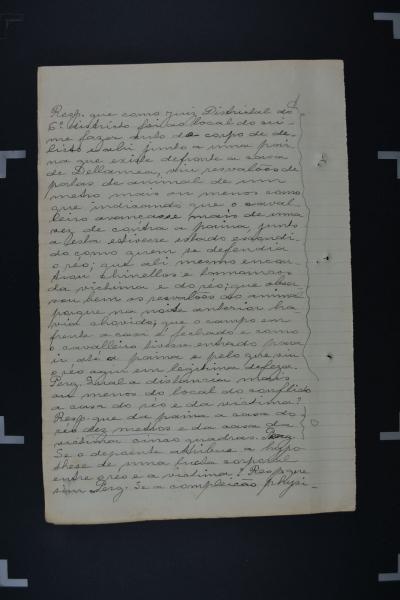 Resp. que como juiz Districtal do
6º districto foi ao local do cri-
me fazer auto de corpo de de-
licto e ahi junto a uma pai-
na que existe defronte a casa
de Dellamea, viu resvalões de
patas de animal de um
metro mais ou menos como
que indicando que o caval-
leiro avançasse mais de uma
vez de contra a paina, junto
a esta estivesse estado escondi-
do como quem se defendia
o réo; que ali mesmo encon-
trou chinellos e
da victima e do réo; que obser-
vou bem os resvalões do animal
porque na noite anterior ha-
via chovido; que o campo em
frente a casa é fechado e como
o cavalleiro tivesse entrado para
ir até a paina e pelo que viu
o réo agiu em legitima defeza.
Perg. Qual a distancia mais
ou menos do local do conflicto
a casa do réo e da victima?
Resp. que da paina a casa do
réo dez metros e da casa da
victima cinco quadras. Perg.
Se o depoente attribue a hypo-
these de uma lucta corporal
entre o réo e a victima? Resp. que
sim. Perg. Se a compleição physi-